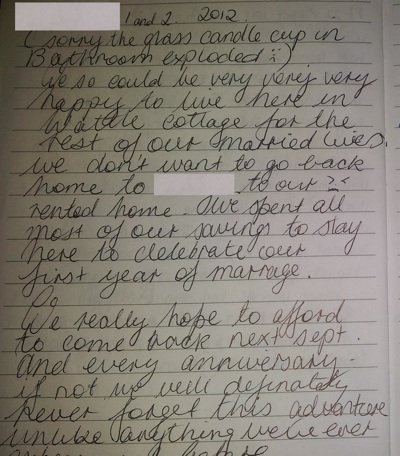 1 and 2. 2012.
(sorry the glass candle cup in
Bathroom exploded :)
we so could be very very very
happy to live here in
Wattle cottage for the
rest of our married lives.
we don't want to go back
home to to our
rented home. We spent all
most of our savings to stay
here to clelebrate our
first year of marrage.
We really hope to afford
to come back next sept.
and every anniversary.
if not we will definataly
never forget this adventure
unlike anything we've ever